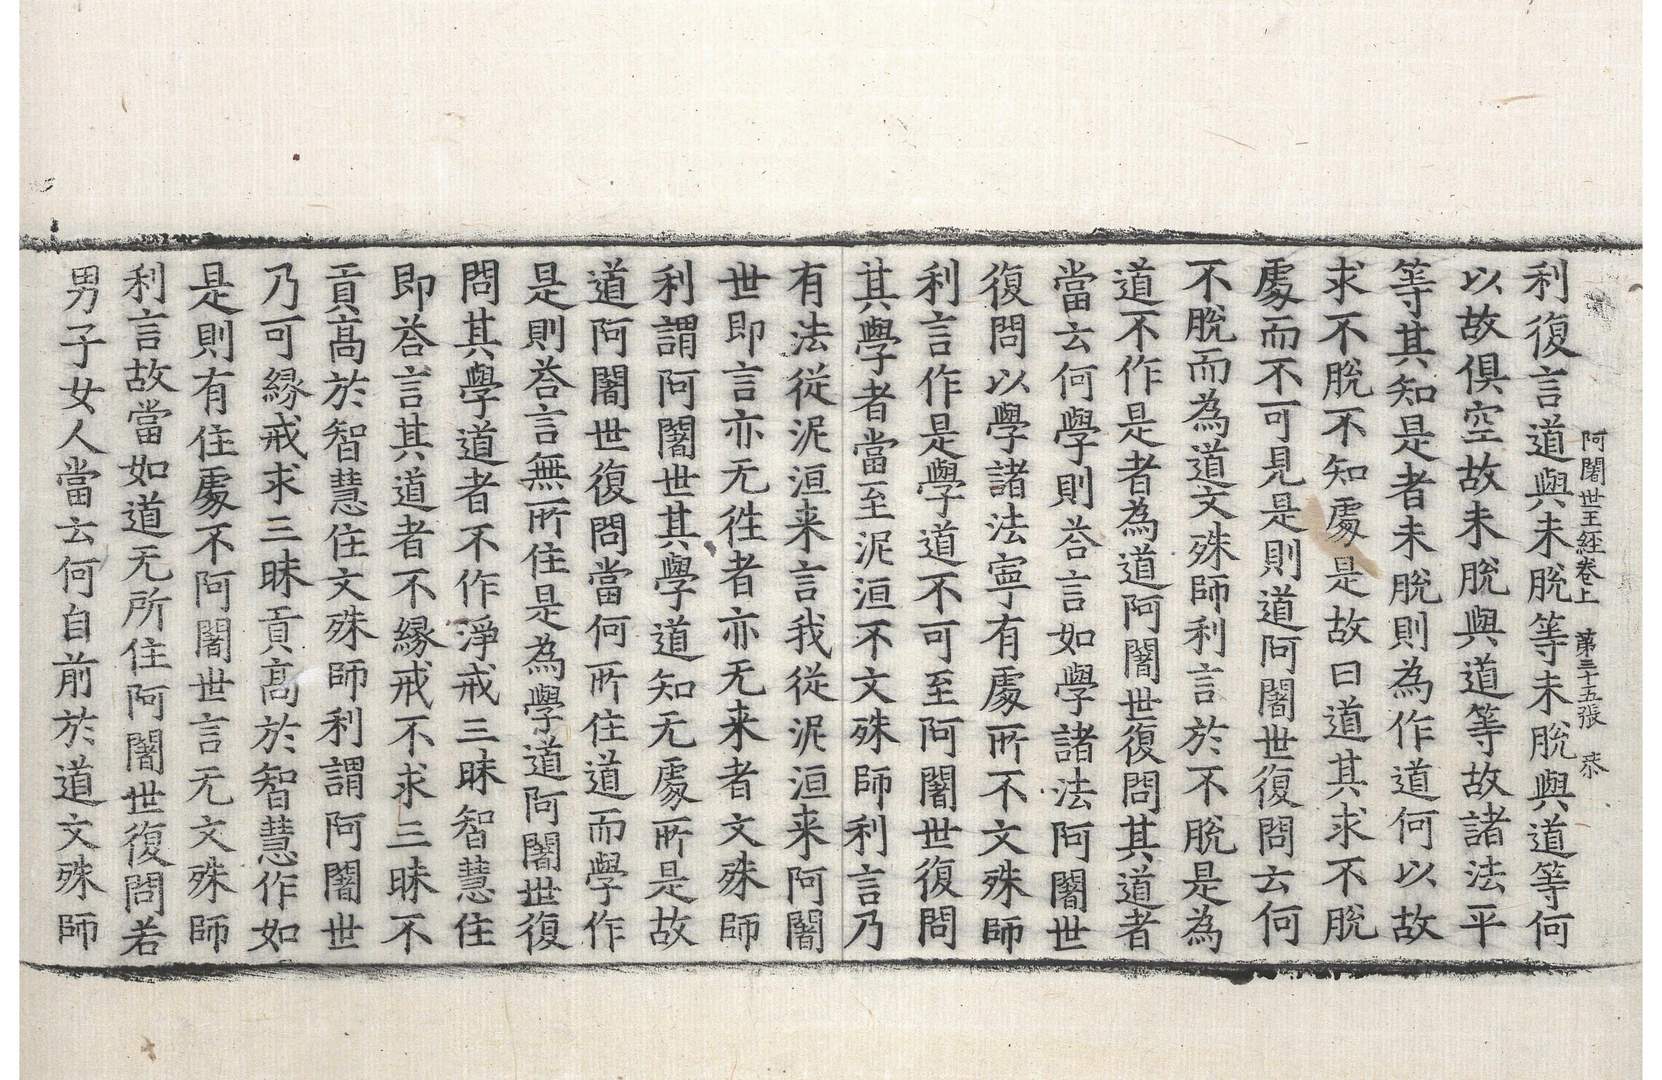 阿闍世王經卷上　第三十五張　恭
利復言道與未脫等未脫與道等何
以故俱空故未脫與道等故諸法平
等其知是者未脫則為作道何以故
求不脫不知處是故曰道其求不脫
處而不可見是則道阿闍世復問云何
不脫而為道文殊師利言於不脫是為
道不作是者為道阿闍世復問其道者
當云何學則荅言如學諸法阿闍世
復問以學諸法寧有處所不文殊師
利言作是學道不可至阿闍世復問
其學者當至泥洹不文殊師利言乃
有法從泥洹来言我從泥洹来阿闍
世即言亦无徃者亦无来者文殊師
利謂阿闍世其學道知无處所是故
道阿闍世復問當何所住道而學作
是則荅言無所住是為學道阿闍世復
問其學道者不作淨戒三昧智慧住
即荅言其道者不緣戒不求三昧不
貢高於智慧住文殊師利謂阿闍世
乃可緣戒求三昧貢高於智慧作如
是則有住處不阿闍世言无文殊師
利言故當如道无所住阿闍世復問若
男子女人當云何自前於道文殊師